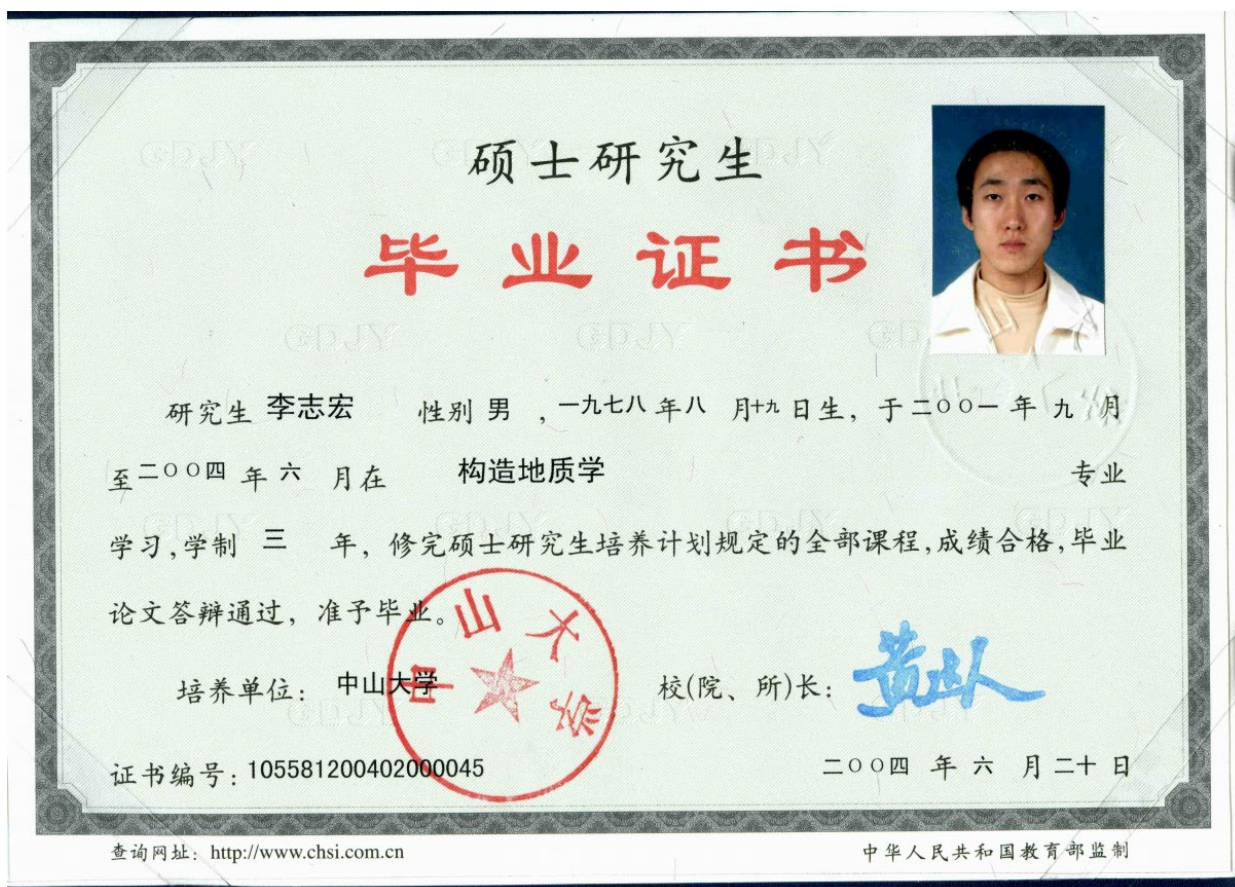 硕士研究生
毕业证书
研究生 李志宏 性别 男 ,一九七八 年八 月十九 日生, 于二〇〇一 年 九 月
至二〇〇四 年 六 月在 构造地质学 专业
学习,学制 三 年, 修完硕士研究生培养计划规定的全部课程,成绩合格,毕业
论文答辩通过, 准予毕业。
中山大学
培养单位: 中山大学 校(院、所)长:
证书编号: 105581200402000045 二〇〇四 年 六 月 二十 日
查询网址: http://www.chsi.com.cn 中华人民共和国教育部监制